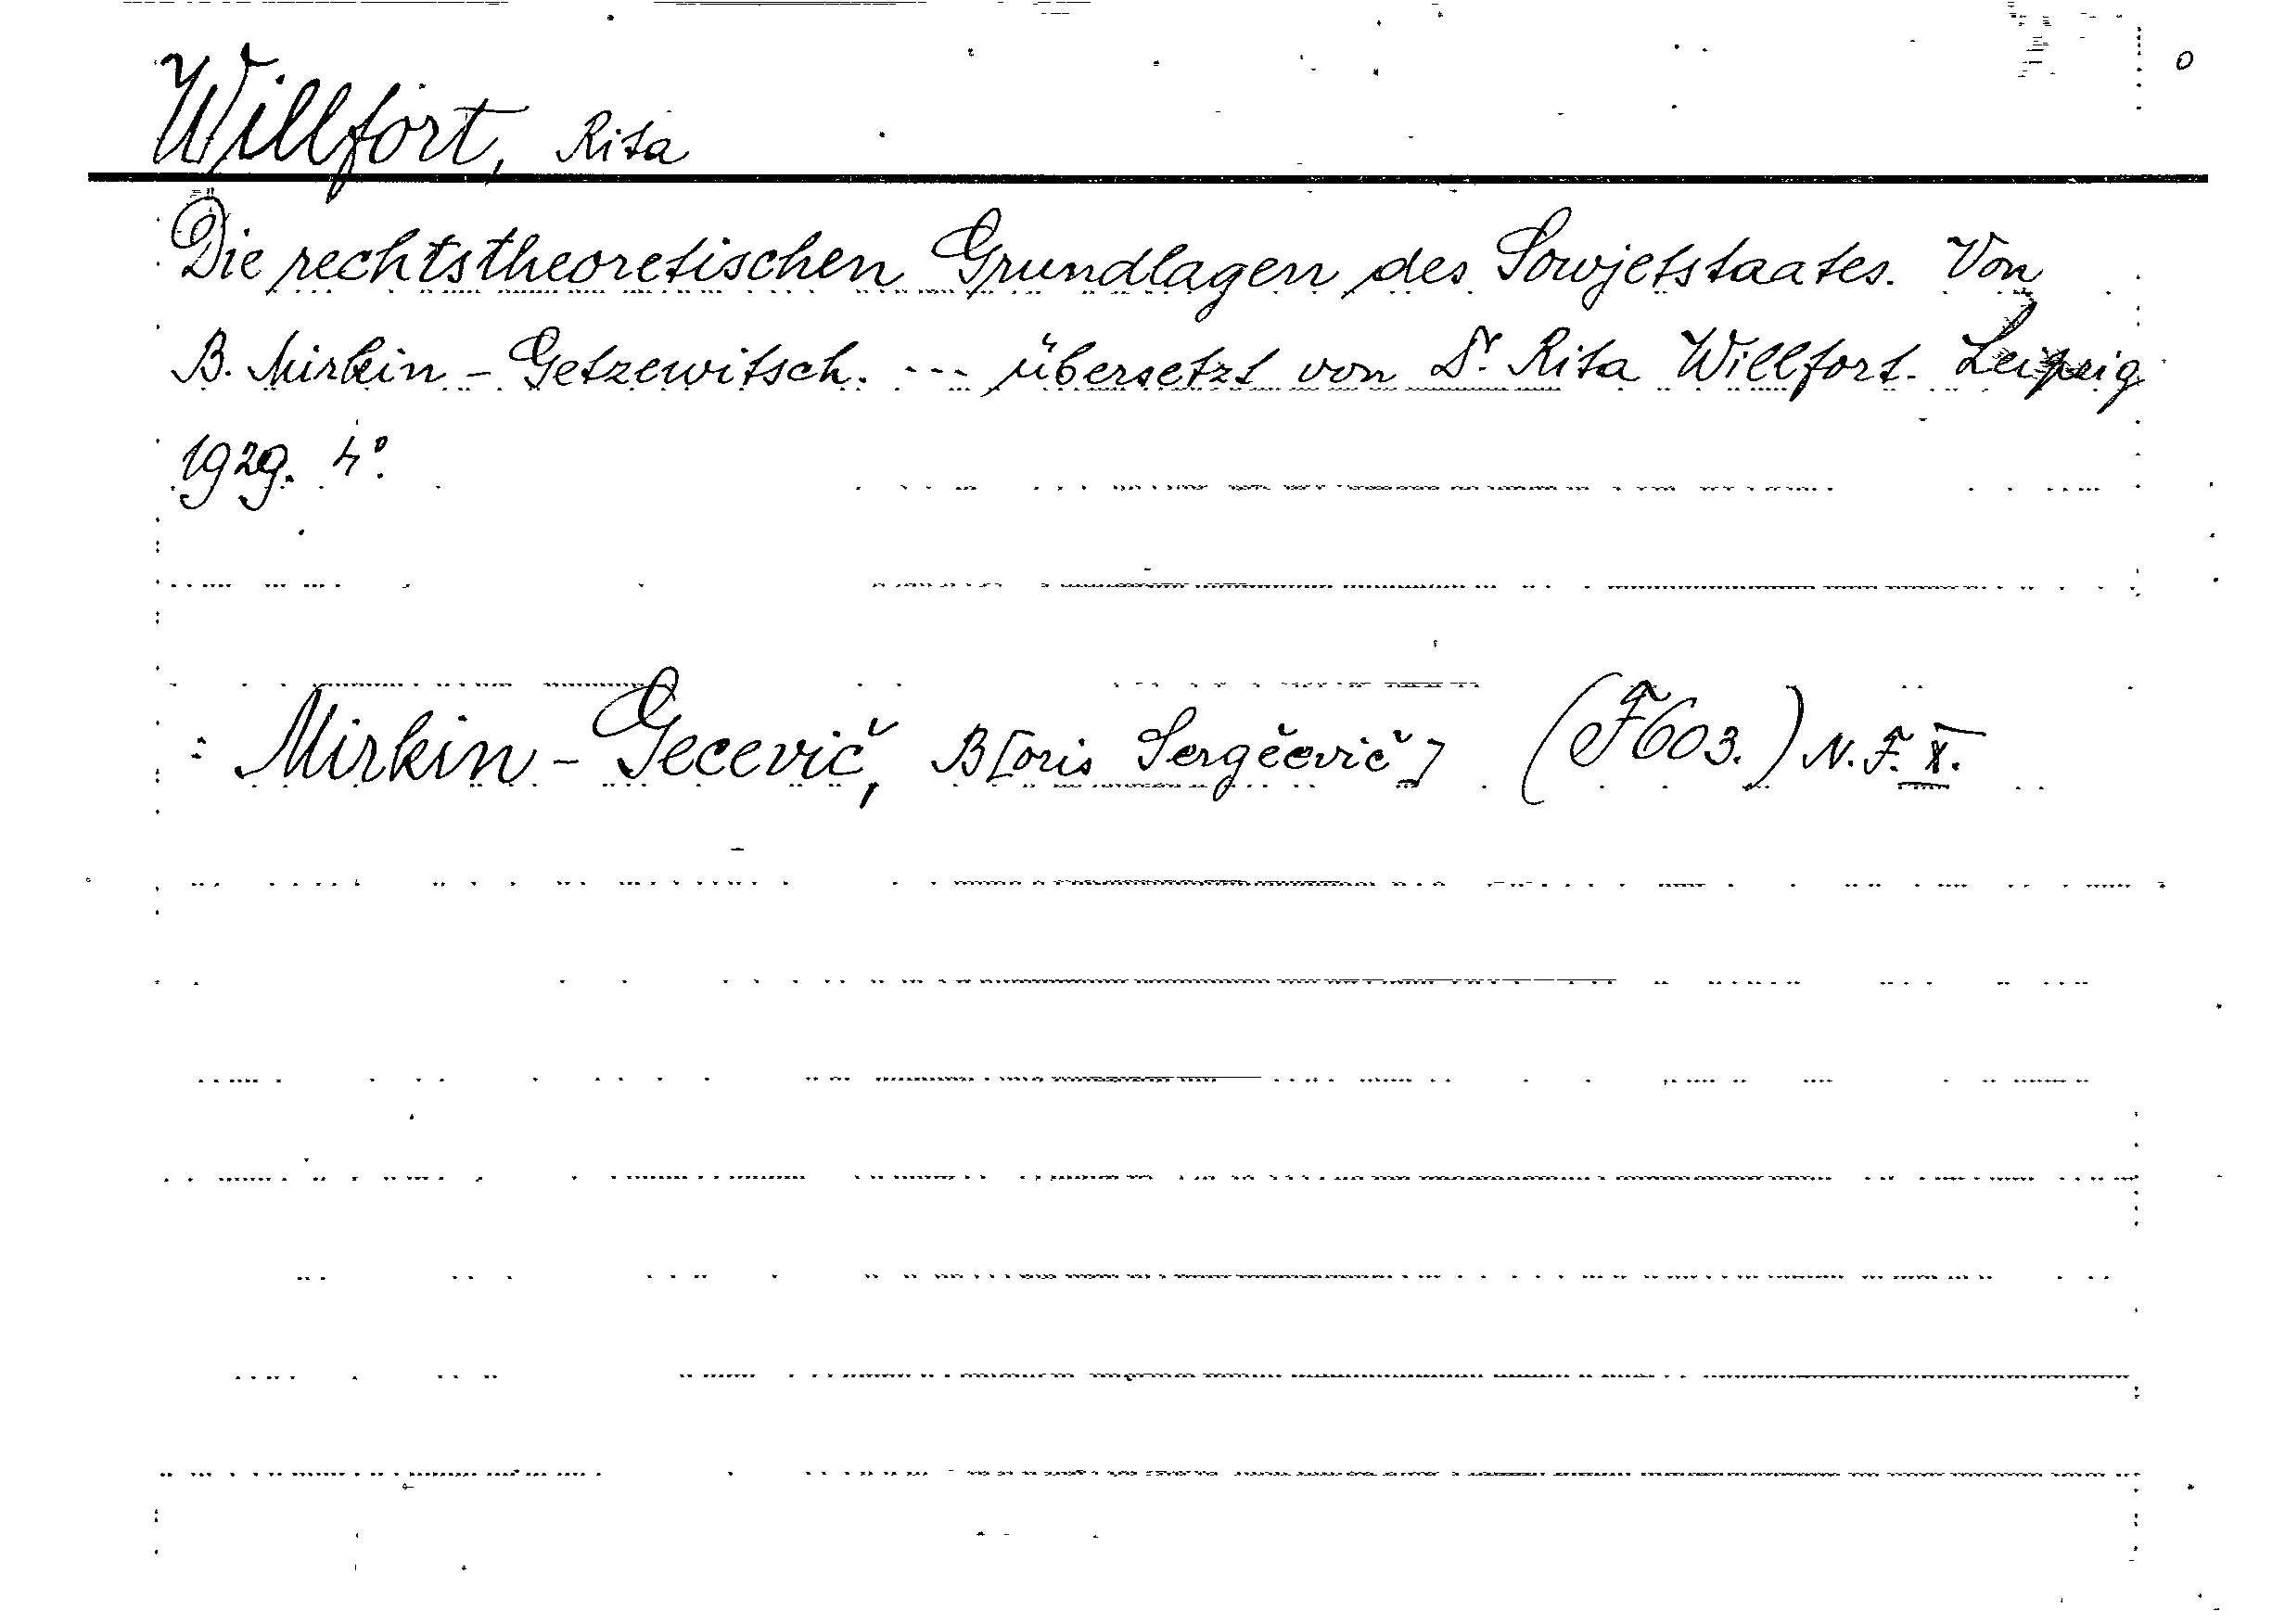 Willfort, Rita
Die rechtstheoretischen Grundlagen des Sowjetstaates. Von
B. Mirkin - Getzewitsch. --- übersetzt von Dr. Rita Willfort. Leipzig
1929. 4°.
: Mirkin - Gecevič, B[oris Sergěevič] (F603.) N.F. X.